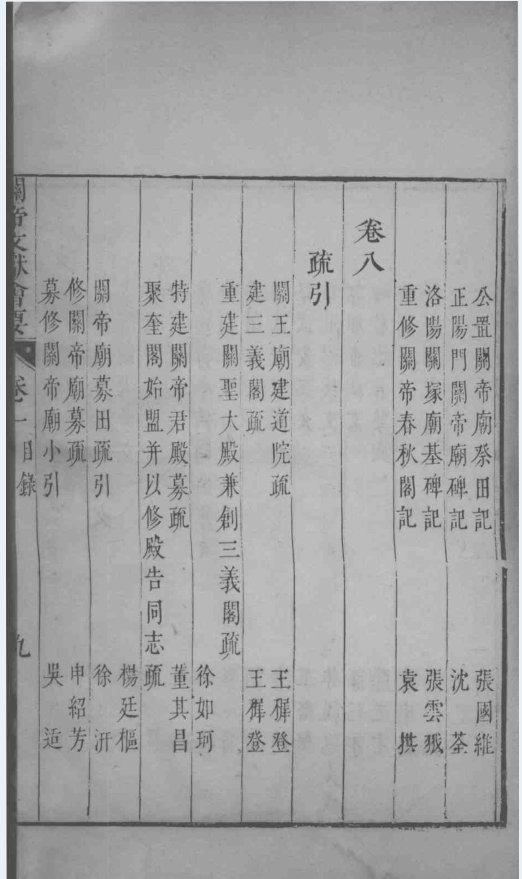 公置關帝廟祭田記 張國維
正陽門關帝廟碑記 沈荃
洛陽關塚廟基碑記 張雲翼
重修關帝春秋閣記 袁 撰
卷八
疏引
關王廟建道院疏 王穉登
建三義閣疏 王穉登
重建關聖大殿兼創三義閣疏 徐如珂
特建關帝君殿募疏 董其昌
聚奎閣始盟并以修殿告同志疏 楊廷樞
關帝廟募田疏引 徐汧
修關帝廟募疏 申紹芳
募修關帝廟小引 吳适
關帝文獻會要 卷一目錄 九